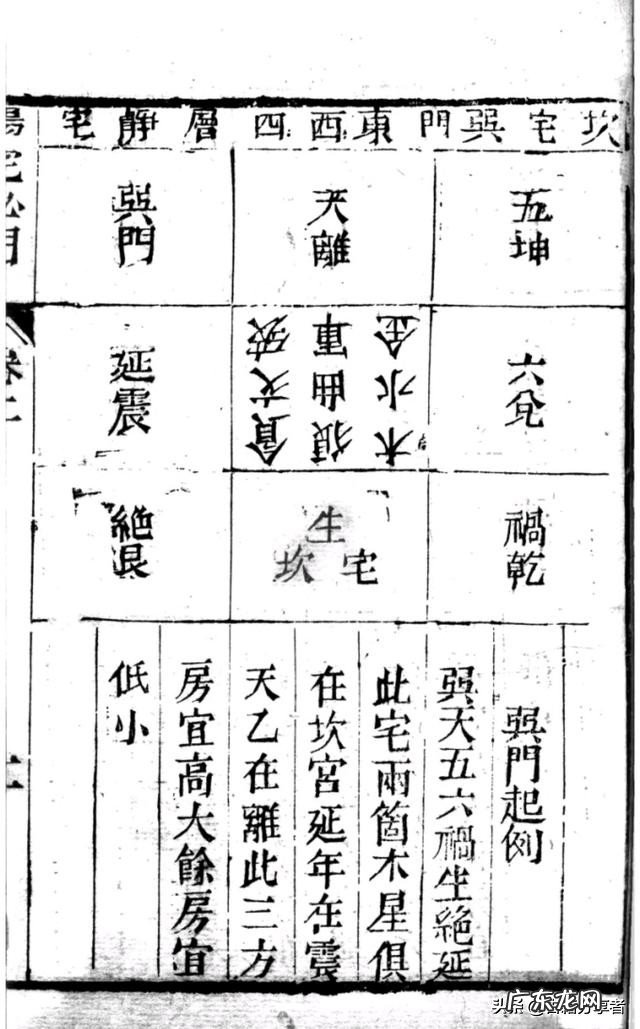 坎宅巽門東西四層靜宅
五坤
天離
巽門
六兌
貪狼木
文曲水
破軍金
延震
禍乾
生
坎宅
絕艮
巽門起例
巽天五六禍生絕延
此宅兩箇木星俱
在坎宮延年在震
天乙在離此三方
房宜高大餘房宜
低小
卷二
广东龙网